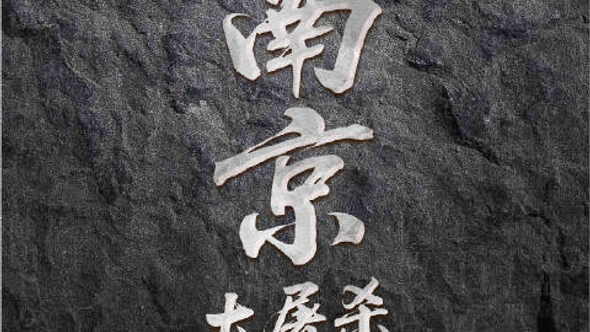 南
京
大屠杀